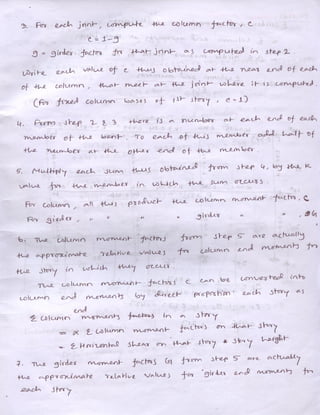 3. For each joint, compute the column factor, c
c = 1-g
g = girder factor for that joint as computed in step 2
Write each value of c thus obtained at the near end of each
of the column, that meet at the joint where it is computed.
(for fixed column bases of 1st story, c = 1)
4. From step 2 & 3 there is a number at each end of each
member of the bent. To each of this member add half of
the number at the other end of the member.
5. Multiply each sum thus obtained from step 4, by the K
value for the member in which the sum occurs.
For column, all this product the column moment factor, C
For girder, " " " girder " " G
6. The column moment factors from step 5 are actually
the approximate relative values for column end moments for
the story in which they occur.
The column moment factors C can be converted into
column end moments by direct proportion each story as
Σ column end moments factors in a story
= α Σ column moment factors on that story
= Σ Horizontal shear on that story x story height
7. The girder moment factors G from step 5 are actually
the approximate relative values for girder end moments for
each story